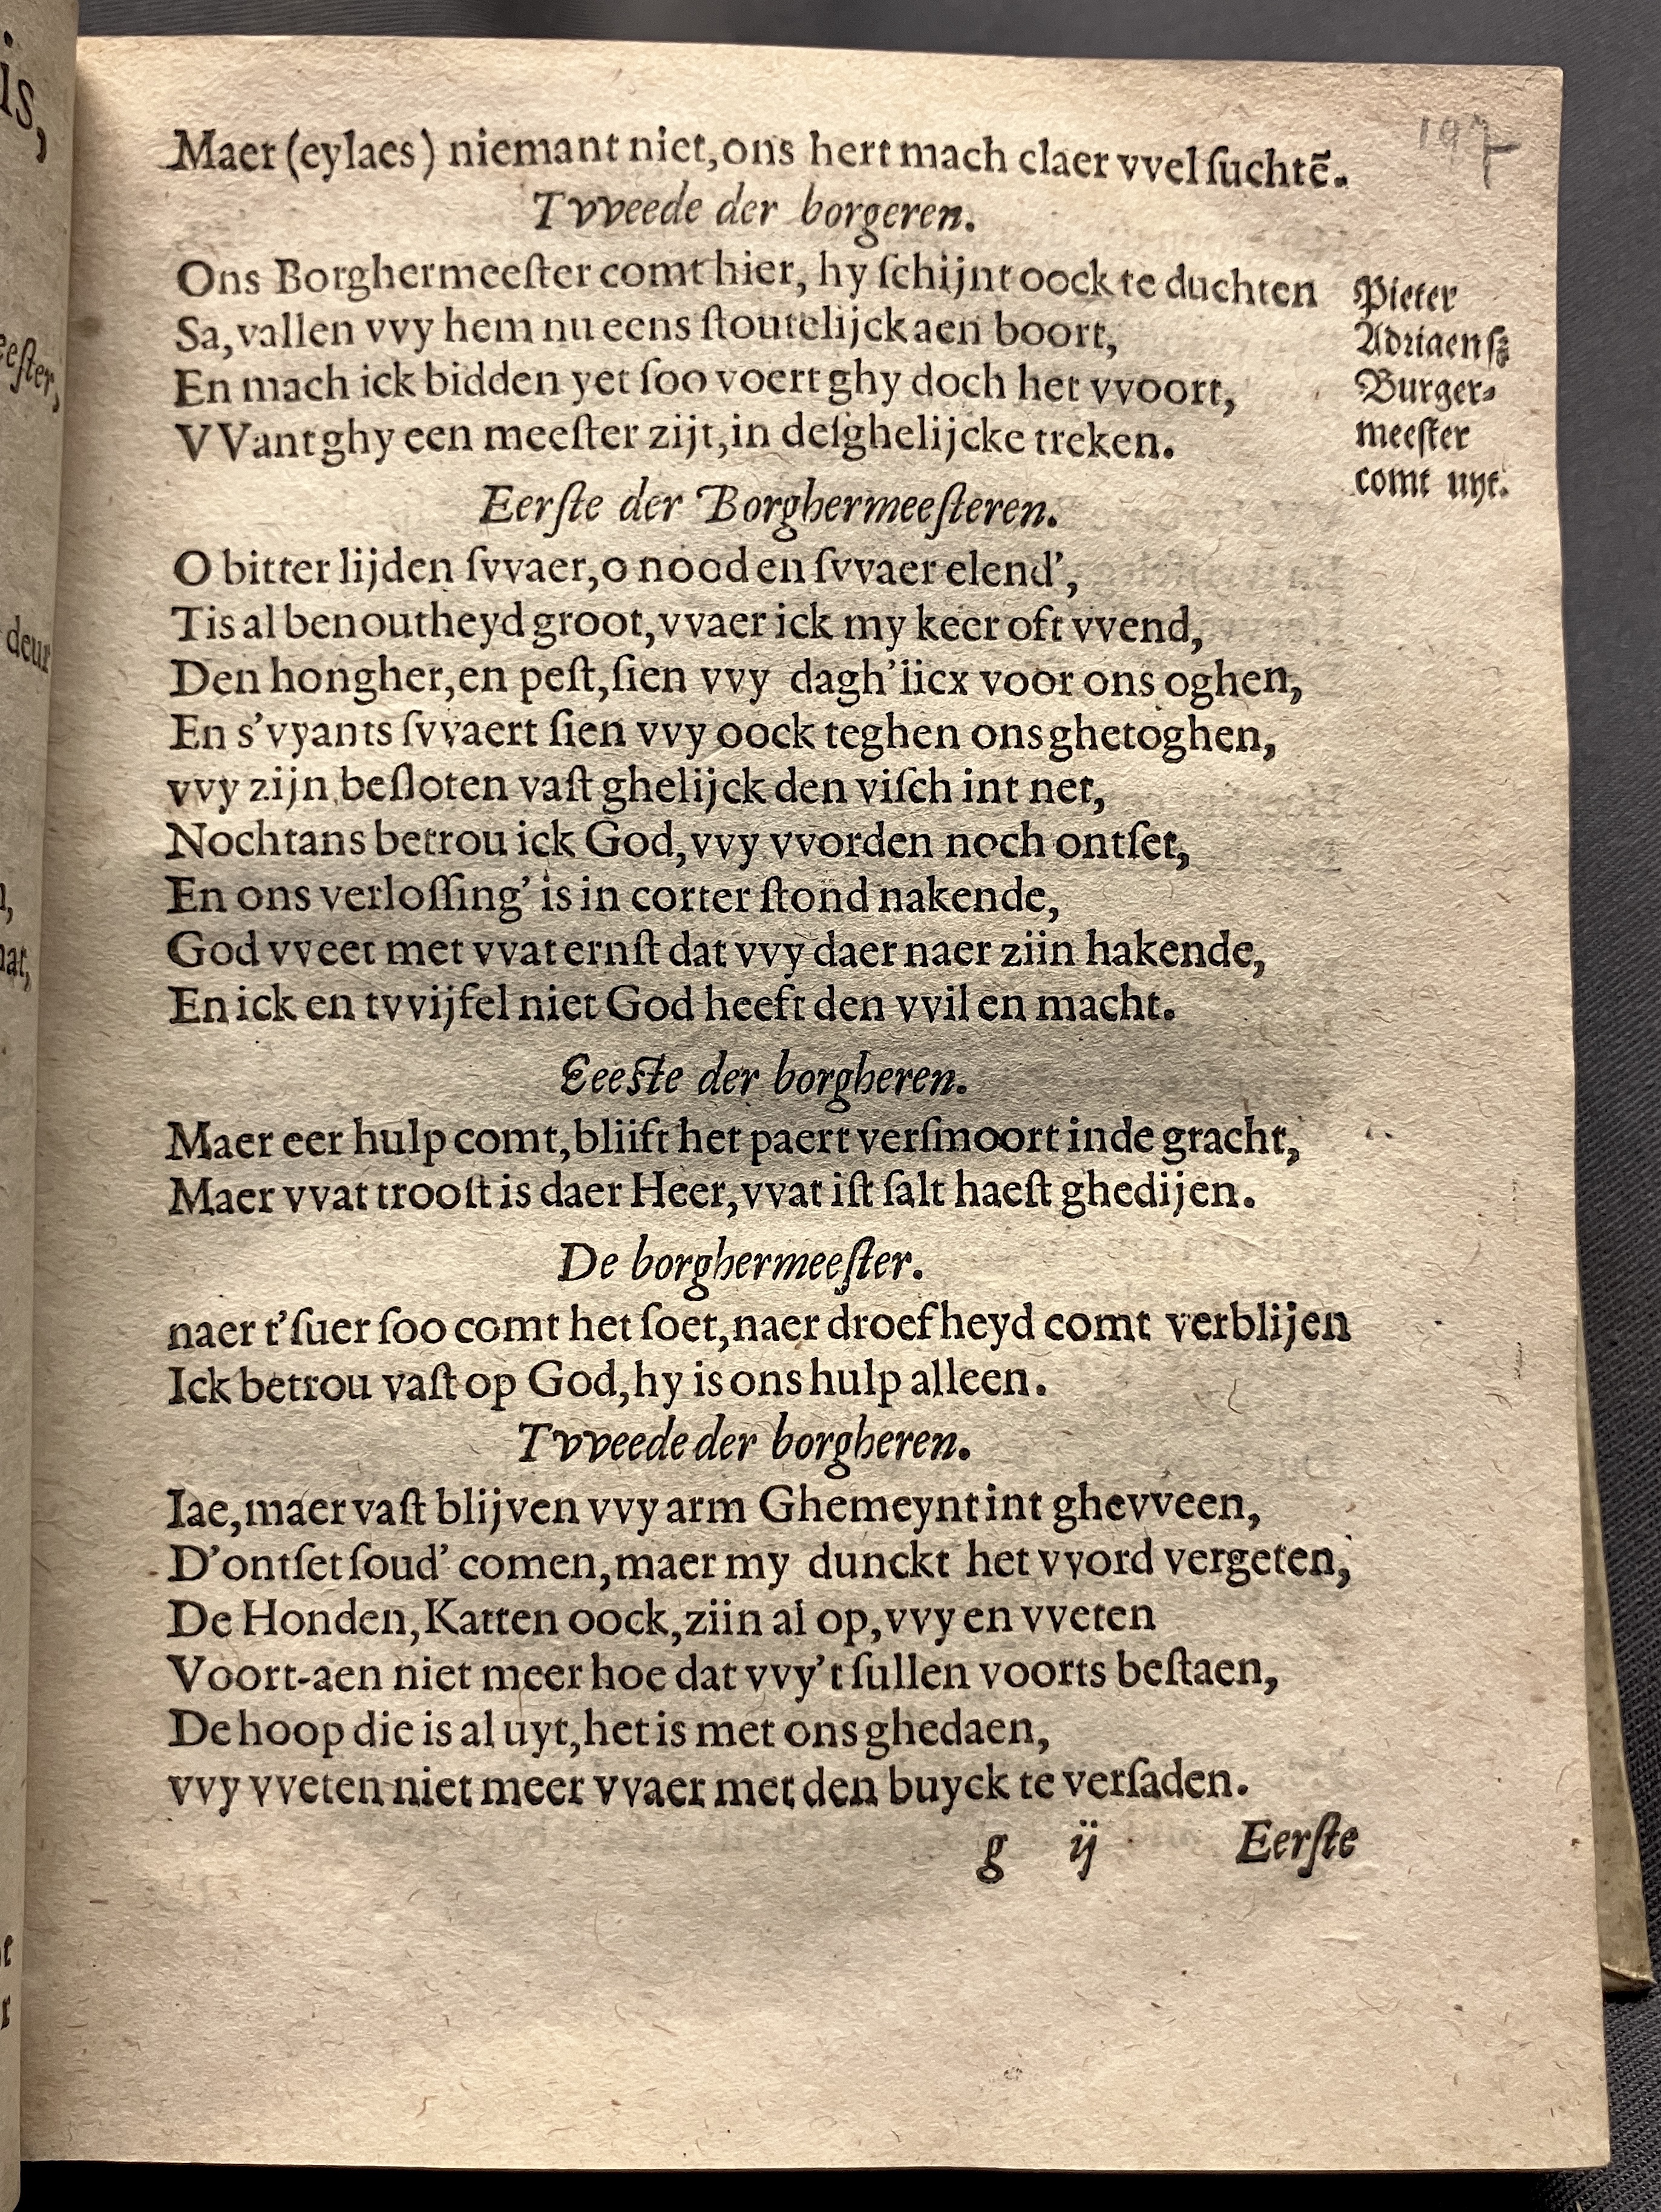 197
Maer (eylaes) niemant niet, ons hert mach claer vvel ſuchtē.
Tvveede der borgeren.
Ons Borghermeeſter comt hier, hy ſchijnt oock te duchten
Sa, vallen vvy hem nu eens ſtoutelijck aen boort,
En mach ick bidden yet ſoo voert ghy doch het vvoort,
VVant ghy een meeſter zijt, in deſghelijcke treken.
Pieter
Adriaenſz
Burger-
meeſter
comt uyt.
Eerſte der Borghermeeſteren.
O bitter lijden ſvvaer, o nood en ſvvaer elend',
Tis al benoutheyd groot, vvaer ick my keer oft vvend,
Den hongher, en peſt, ſien vvy dagh'iicx voor ons oghen,
En s'vyants ſvvaert ſien vvy oock teghen ons ghetoghen,
vvy zijn beſloten vaſt ghelijck den viſch int net,
Nochtans betrou ick God, vvy vvorden noch ontſet,
En ons verloſſing' is in corter ſtond nakende,
God vveet met vvat ernſt dat vvy daer naer ziin hakende,
En ick en tvvijfel niet God heeft den vvil en macht.
Eeeſte der borgheren.
Maer eer hulp comt, bliift het paert verſmoort inde gracht,
Maer vvat trooſt is daer Heer, vvat iſt ſalt haeſt ghedijen.
De borghermeeſter.
naer t'ſuer ſoo comt het ſoet, naer droefheyd comt verblijen
Ick betrou vaſt op God, hy is ons hulp alleen.
Tvveede der borgheren.
Iae, maer vaſt blijven vvy arm Ghemeynt int ghevveen,
D'ontſet ſoud' comen, maer my dunckt het vvord vergeten,
De Honden, Katten oock, ziin al op, vvy en vveten
Voort-aen niet meer hoe dat vvy't ſullen voorts beſtaen,
De hoop die is al uyt, het is met ons ghedaen,
vvy vveten niet meer vvaer met den buyck te verſaden.
g ij Eerſte
is,
eeſter,
deur